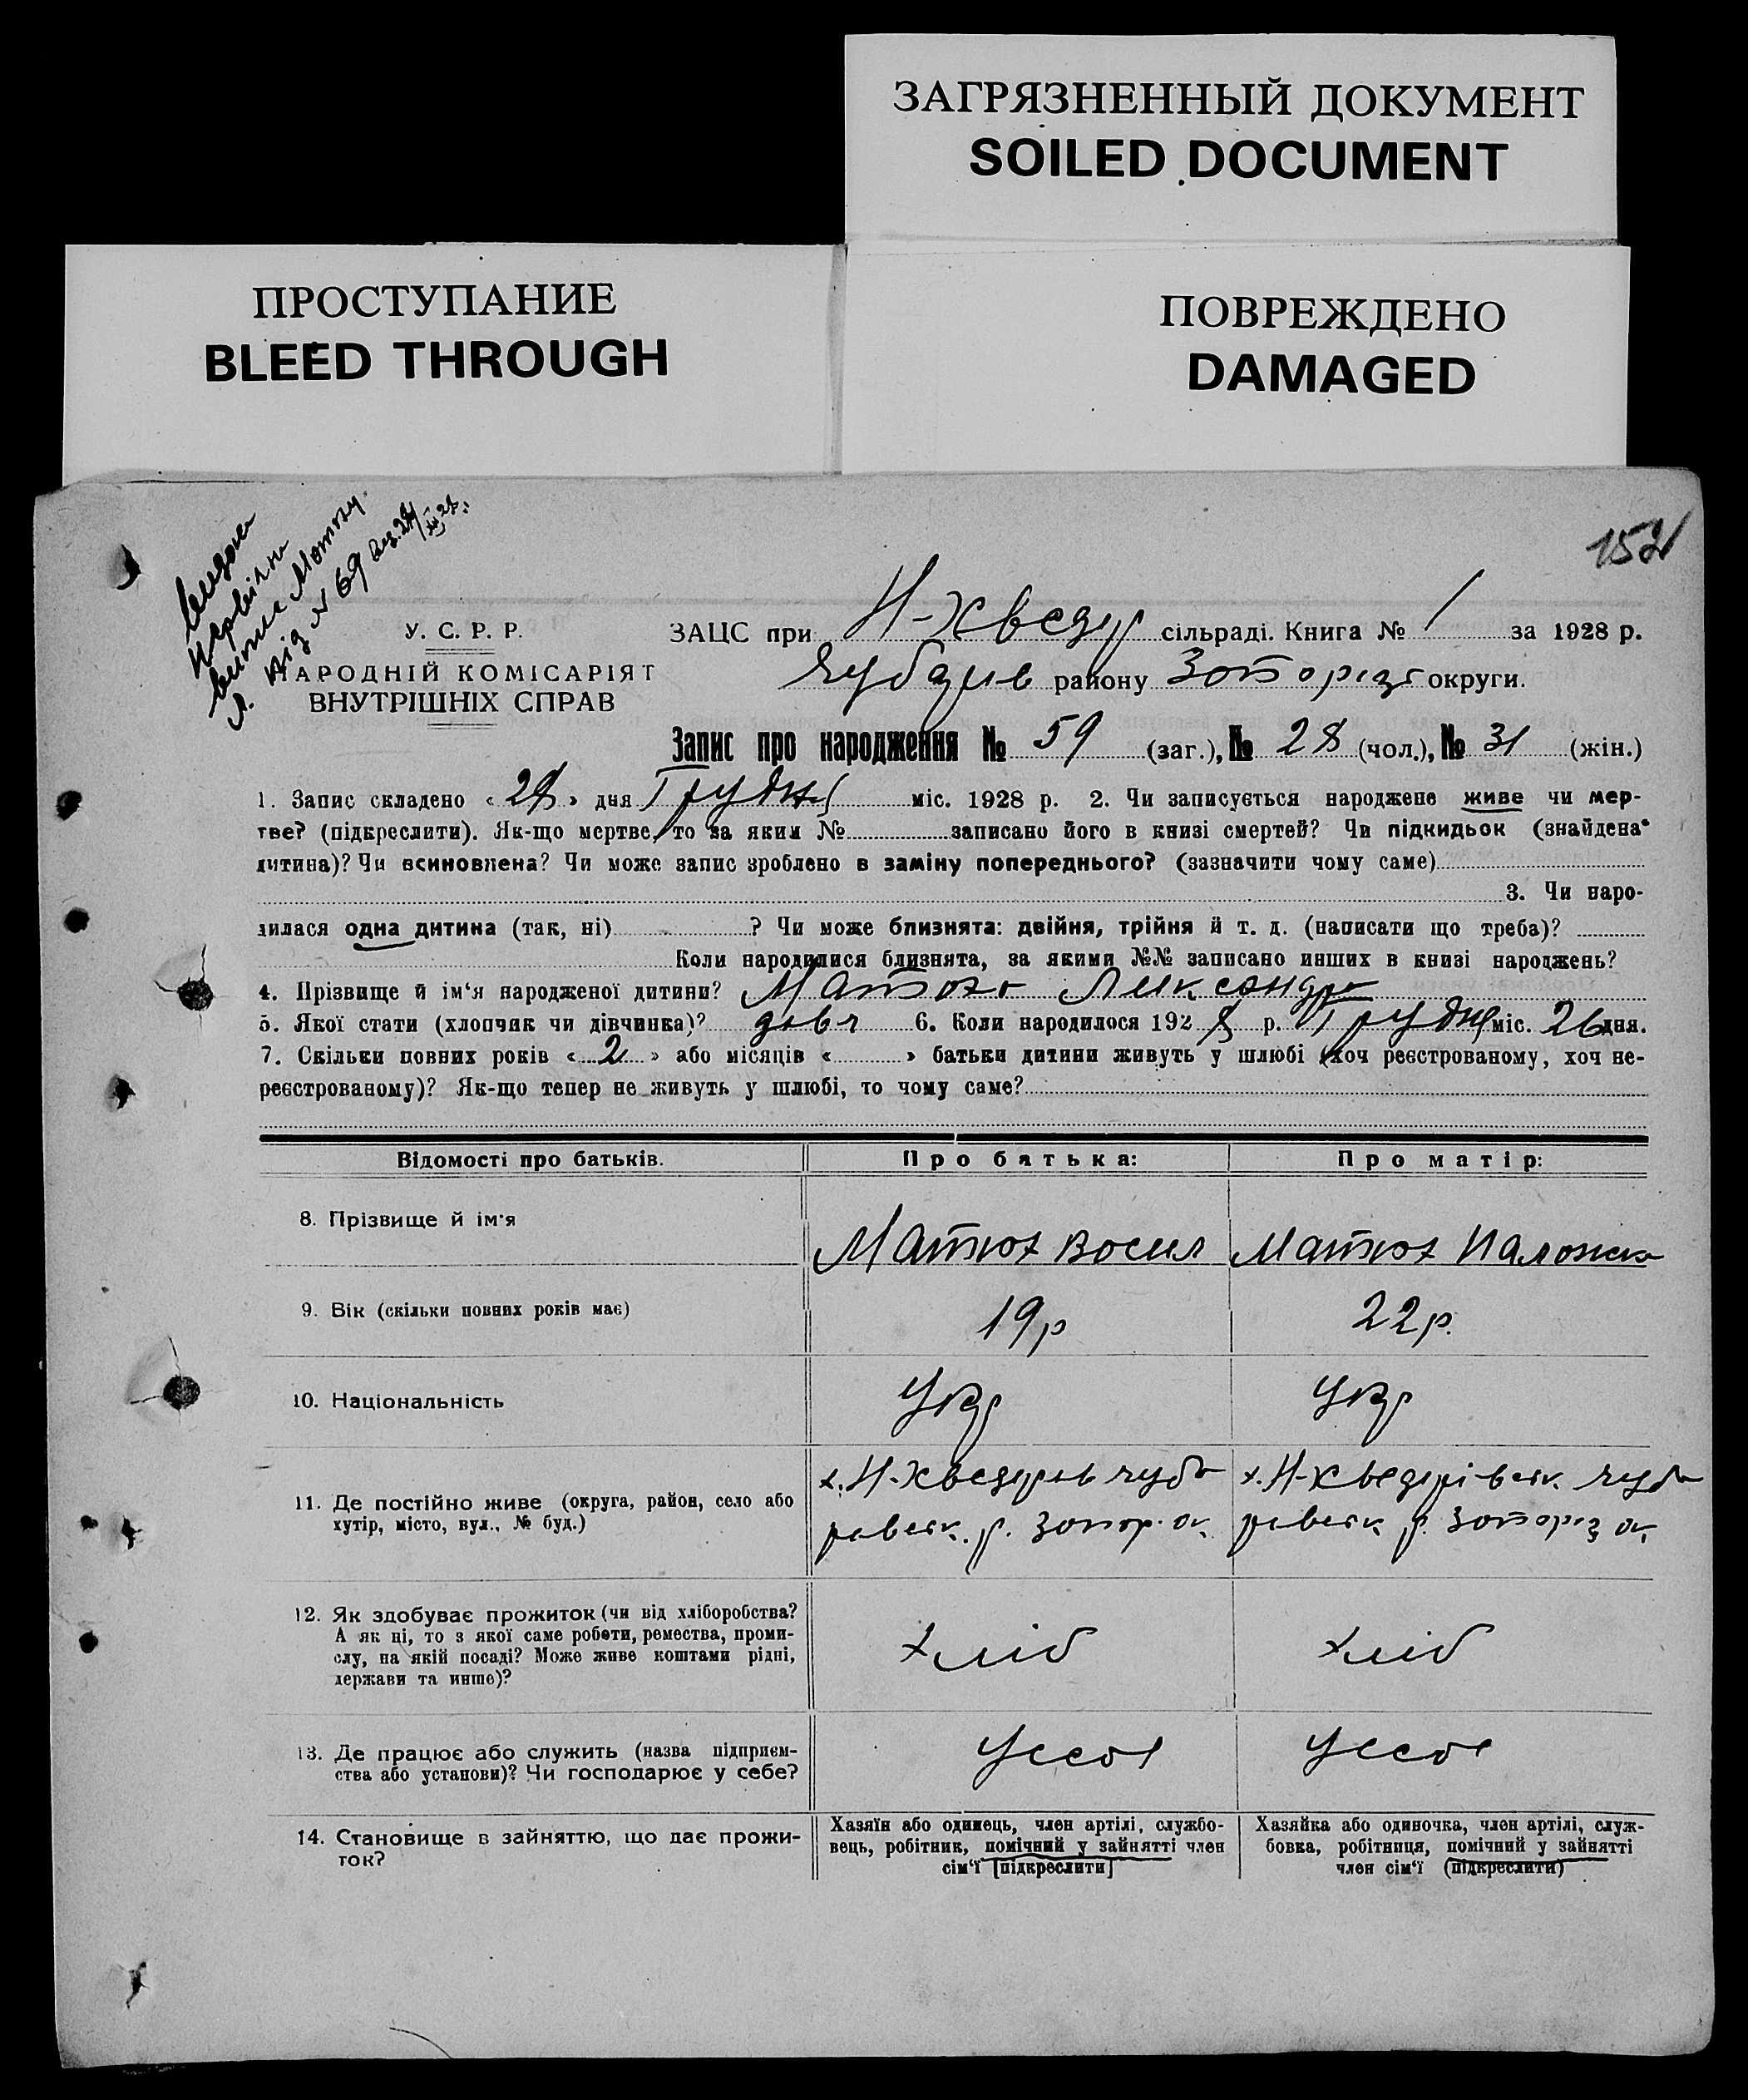 ЗАГРЯЗНЕННЫЙ ДОКУМЕНТ
SOILED DOCUMENT
ПРОСТУПАНИЕ
BLEED THROUGH
ПОВРЕЖДЕНО
DAMAGED
152
У. С. Р. Р.
НАРОДНІЙ КОМІСАРІЯТ
ВНУТРІШНІХ СПРАВ
ЗАЦС при Н-Хведур сільраді. Книга № 1 за 1928 р.
району округи.
Запис про народження № 59 (заг.), № 28 (чол.), № 31 (жін.)
1. Запис складено « 28 » дня Грудня міс. 1928 р. 2. Чи записується народжене живе чи мер-
тве? (підкреслити). Як-що мертве, то за яким № записано його в книзі смертей? Чи підкидьок (знайдена
дитина)? Чи всиновлена? Чи може запис зроблено в заміну попереднього? (зазначити чому саме)
3. Чи наро-
дилася одна дитина (так, ні) ? Чи може близнята: двійня, трійня й т. д. (написати що треба)?
Коли народилися близнята, за якими №№ записано инших в книзі народжень?
4. Прізвище й ім‘я народженої дитини? Матюх Лександра
5. Якої стати (хлопчик чи дівчинка)? дівч 6. Коли народилося 1928 р. Грудня міс. 26 дня.
7. Скільки повних років « 2 » або місяців « » батьки дитини живуть у шлюбі (хоч реєстрованому, хоч не-
реєстрованому)? Як-що тепер не живуть у шлюбі, то чому саме?
Відомості про батьків. Про батька: Про матір:
8. Прізвище й ім‘я Матюх Восил Матюх Палажка
9. Вік (скільки повних років має) 19 р 22 р.
10. Національність Укр Укр
11. Де постійно живе (округа, район, село або
хутір, місто, вул., № буд.)
х. Н-Хведурів Чуба х. Н-Хведрівськ. Чуба
рівськ. р. Запор. ок. рівськ р. Запоріз ок
12. Як здобуває прожиток (чи від хліборобства?
А як ні, то з якої саме роботи, ремества, проми-
слу, на якій посаді? Може живе коштами рідні,
держави та инше)?
хліб хліб
13. Де працює або служить (назва підприєм-
ства або установи)? Чи господарює у себе?
Усебе Усебе
14. Становище в зайняттю, що дає прожи-
ток?
Хазяїн або одинець, член артілі, службо-
вець, робітник, помічний у зайнятті член
сім‘ї [підкреслити]
Хазяйка або одиночка, член артілі, служ-
бовка, робітниця, помічний у зайнятті
член сім‘ї (підкреслити)